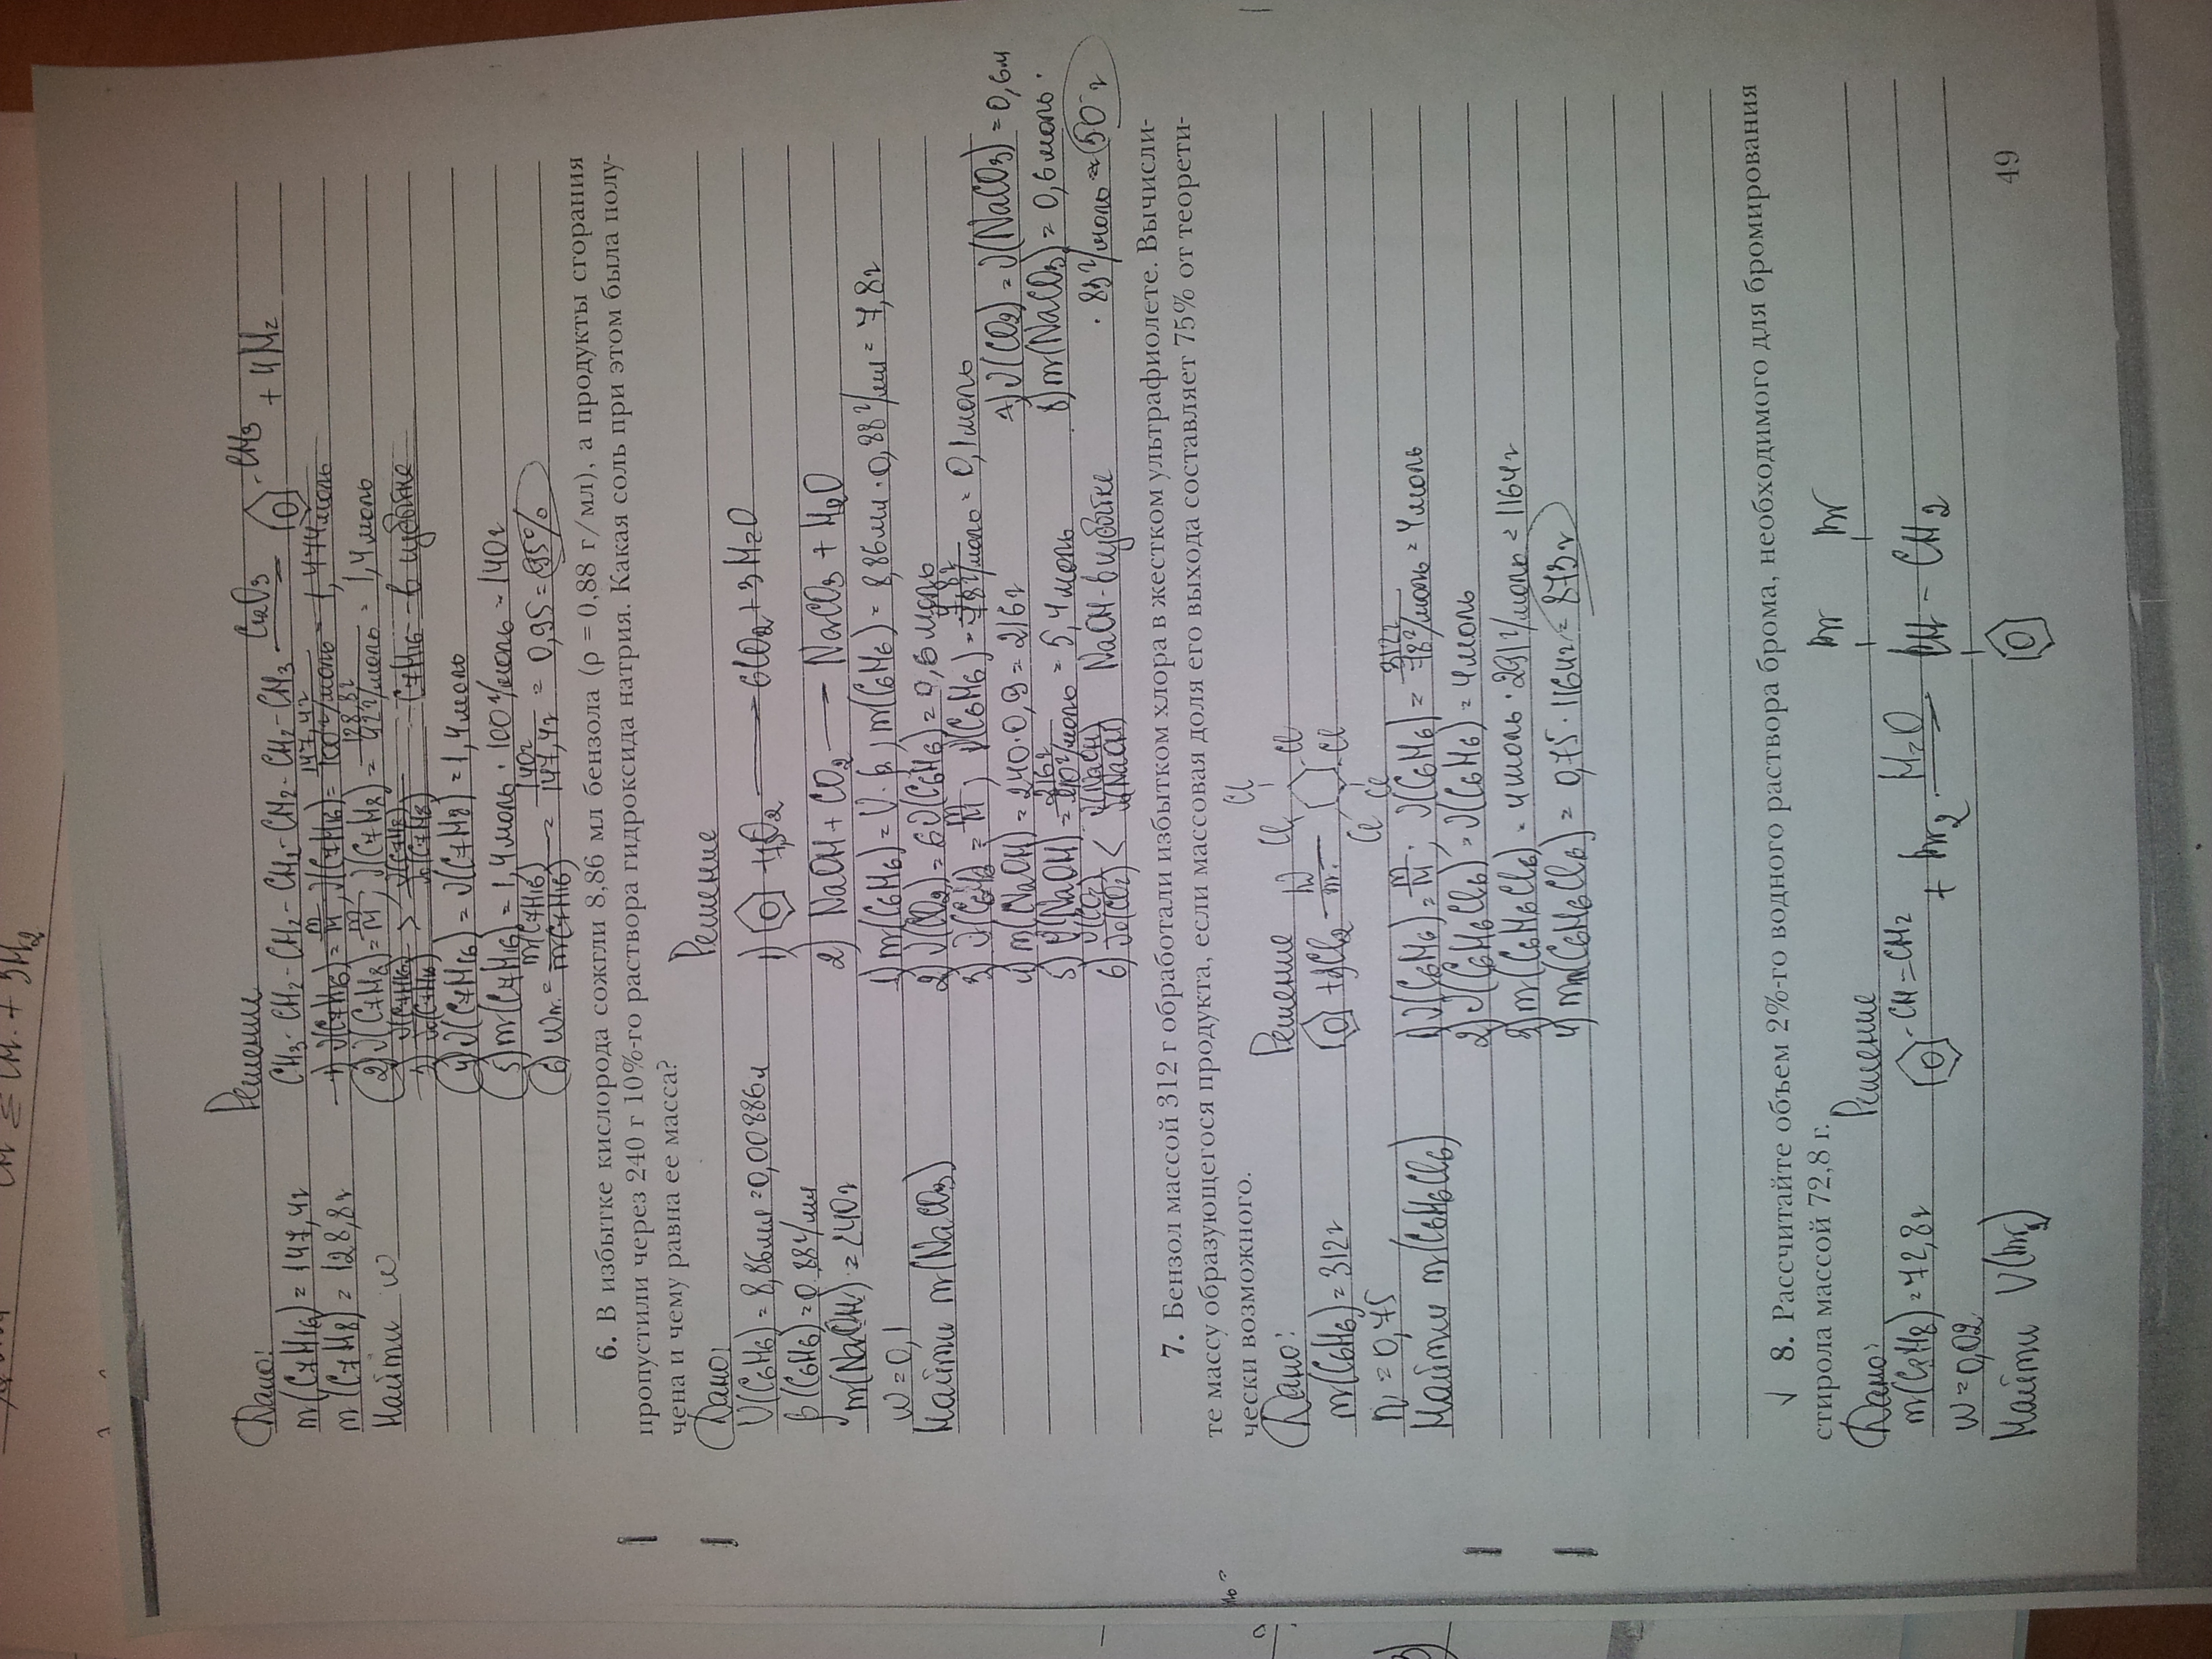 Решение
Дано:
CH₃-CH₂-CH₂-CH₂-CH₂-CH₂-CH₃ + 4H₂
m(C₇H₁₆) = 147,4г
m(C₇H₈) = 128,8г
Найти w
2) ν(C₇H₈) = m/M; ν(C₇H₈) = 128,8г / 92г/моль = 1,4моль
4) ν(C₇H₁₆) = ν(C₇H₈) = 1,4моль
5) m(C₇H₁₆) = 1,4моль · 100г/моль = 140г
140г / 147,4г = 0,95 = 95%
6. В избытке кислорода сожгли 8,86 мл бензола (ρ = 0,88 г/мл), а продукты сгорания
пропустили через 240 г 10%-го раствора гидроксида натрия. Какая соль при этом была полу-
чена и чему равна ее масса?
Дано: Решение
V(C₆H₆) = 8,86мл = 0,00886л
ρ(C₆H₆) = 0,88г/мл
m(NaOH) = 240г
w = 0,1
Найти m(NaCO₃)
6CO₂ + 3H₂O
2) NaOH + CO₂ — NaCO₃ + H₂O
1) m(C₆H₆) = V · ρ, m(C₆H₆) = 8,86мл · 0,88г/мл = 7,8г
2) ν(CO₂) = 6ν(C₆H₆) = 0,6 моль
3) ν(C₆H₆) = m/M, ν(C₆H₆) = 7,8г / 78г/моль = 0,1моль
4) m(NaOH) = 240·0,9 = 216г
5) ν(NaOH) = 216г / 40г/моль = 5,4моль
6) NaOH - в избытке
7) ν(CO₂) = ν(NaCO₃) = 0,6м
8) m(NaCO₃) = 0,6моль ·
· 83г/моль ≈ 50г
7. Бензол массой 312 г обработали избытком хлора в жестком ультрафиолете. Вычисли-
те массу образующегося продукта, если массовая доля его выхода составляет 75% от теорети-
чески возможного.
Дано: Решение
m(C₆H₆) = 312г
η = 0,75
Найти m(C₆H₆Cl₆)
+ 3Cl₂
Cl Cl Cl Cl Cl Cl
1) ν(C₆H₆) = m/M; ν(C₆H₆) = 312г / 78г/моль = 4моль
2) ν(C₆H₆Cl₆) = ν(C₆H₆) = 4моль
3) m(C₆H₆Cl₆) = 4моль · 291г/моль = 1164г
4) m(C₆H₆Cl₆) = 0,75 · 1164г = 873г
8. Рассчитайте объем 2%-го водного раствора брома, необходимого для бромирования
стирола массой 72,8 г.
Дано: Решение
m(C₈H₈) = 72,8г
w = 0,02
Найти V(Br₂)
-CH=CH₂ + Br₂ H₂O CH - CH₂
Br Br
49